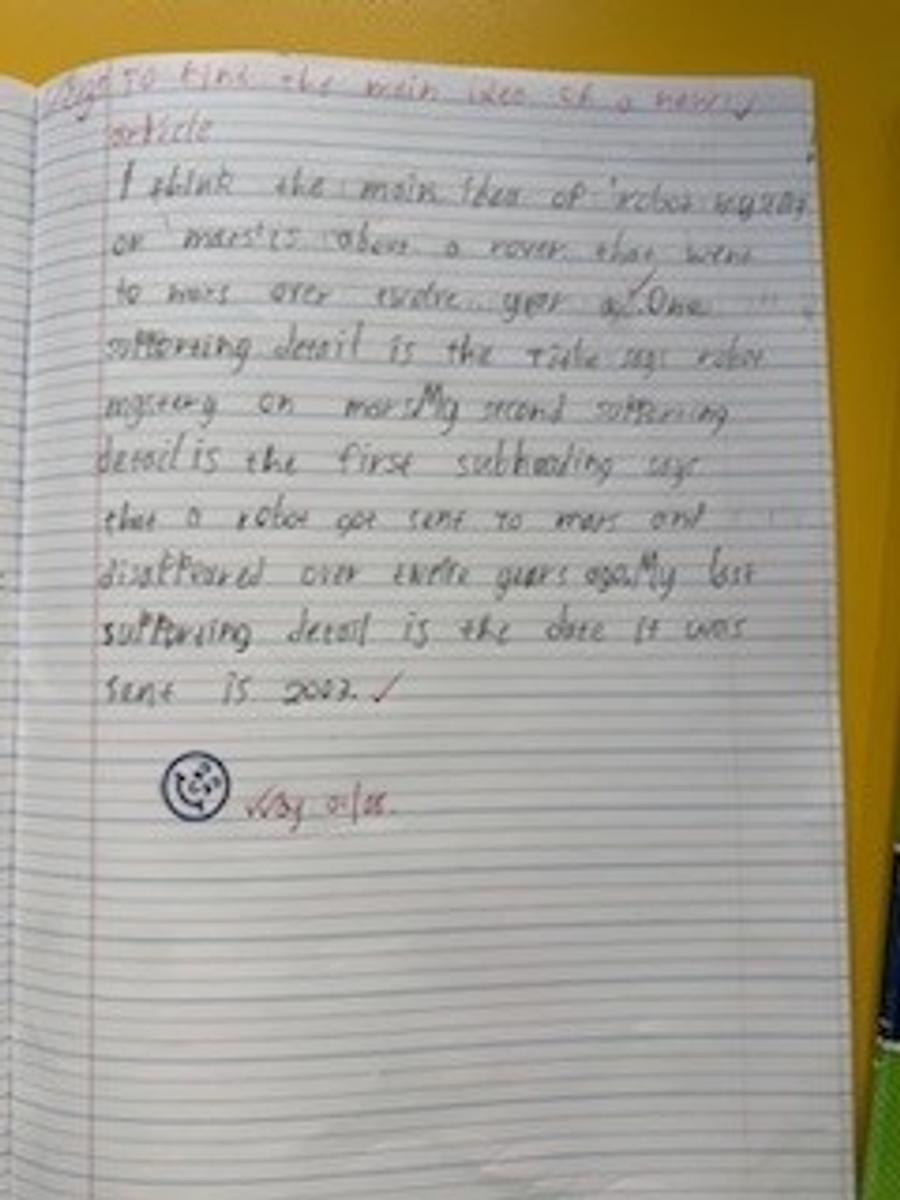 to find the main idea of a news
article
I think the main idea of 'robot mystery
on mars' is about a rover that went
to mars over twelve year ago. One
supporting detail is the title says robot
mystery on mars. My second supporting
detail is the first subheading says
that a robot got sent to mars and
disappeared over twelve years ago. My last
supporting detail is the date it was
sent is 2003.